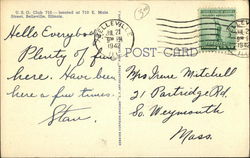 U. S. O. Club 715 — located at 715 E. Main
Street, Belleville, Illinois.
Hello Everybody
Plenty of fun
here. Have been
here a few times.
Stan.
BELLEVILLE
JUL 21
1942
POST CARD
Mrs Irene Mitchell
21 Partridge Rd.
So. Weymouth
Mass.